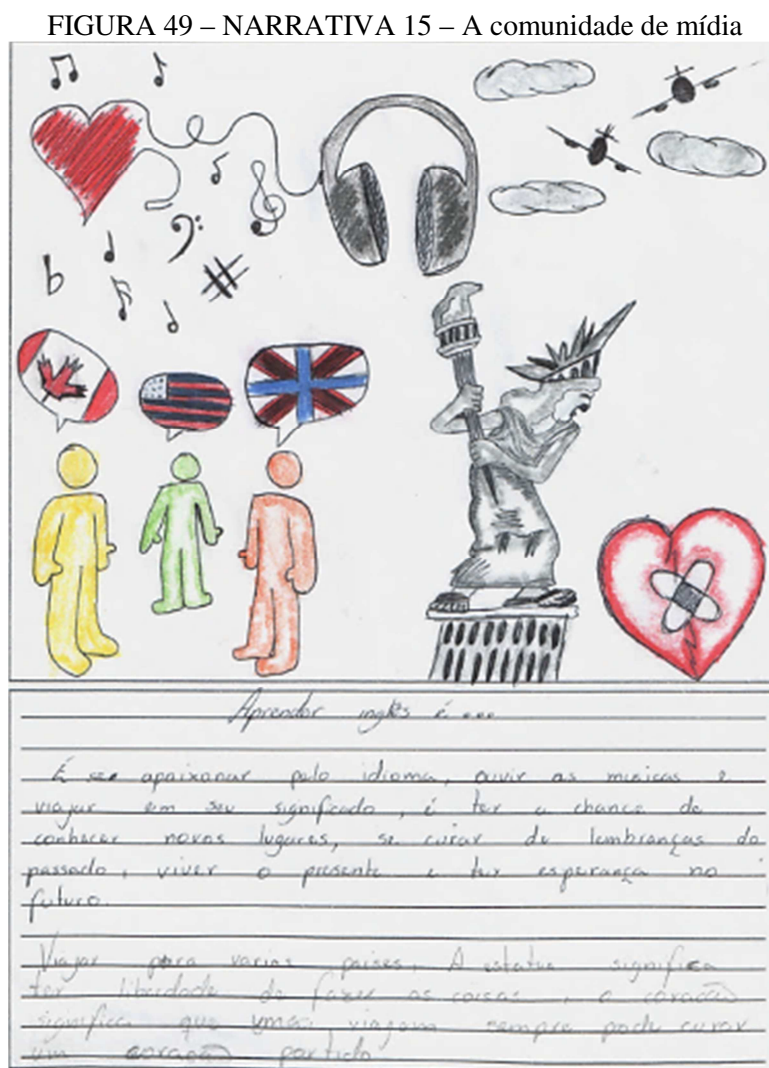 FIGURA 49 – NARRATIVA 15 – A comunidade de mídia
Aprender inglês é ...
É se apaixonar pelo idioma, ouvir as músicas e
viajar em seu significado, é ter a chance de
conhecer novos lugares, se curar de lembranças do
passado, viver o presente e ter esperança no
futuro.
Viajar para varios paises, A estatua significa
ter liberdade de fazer as coisas, o coração
significa que uma viajem sempre pode curar
um coração partido